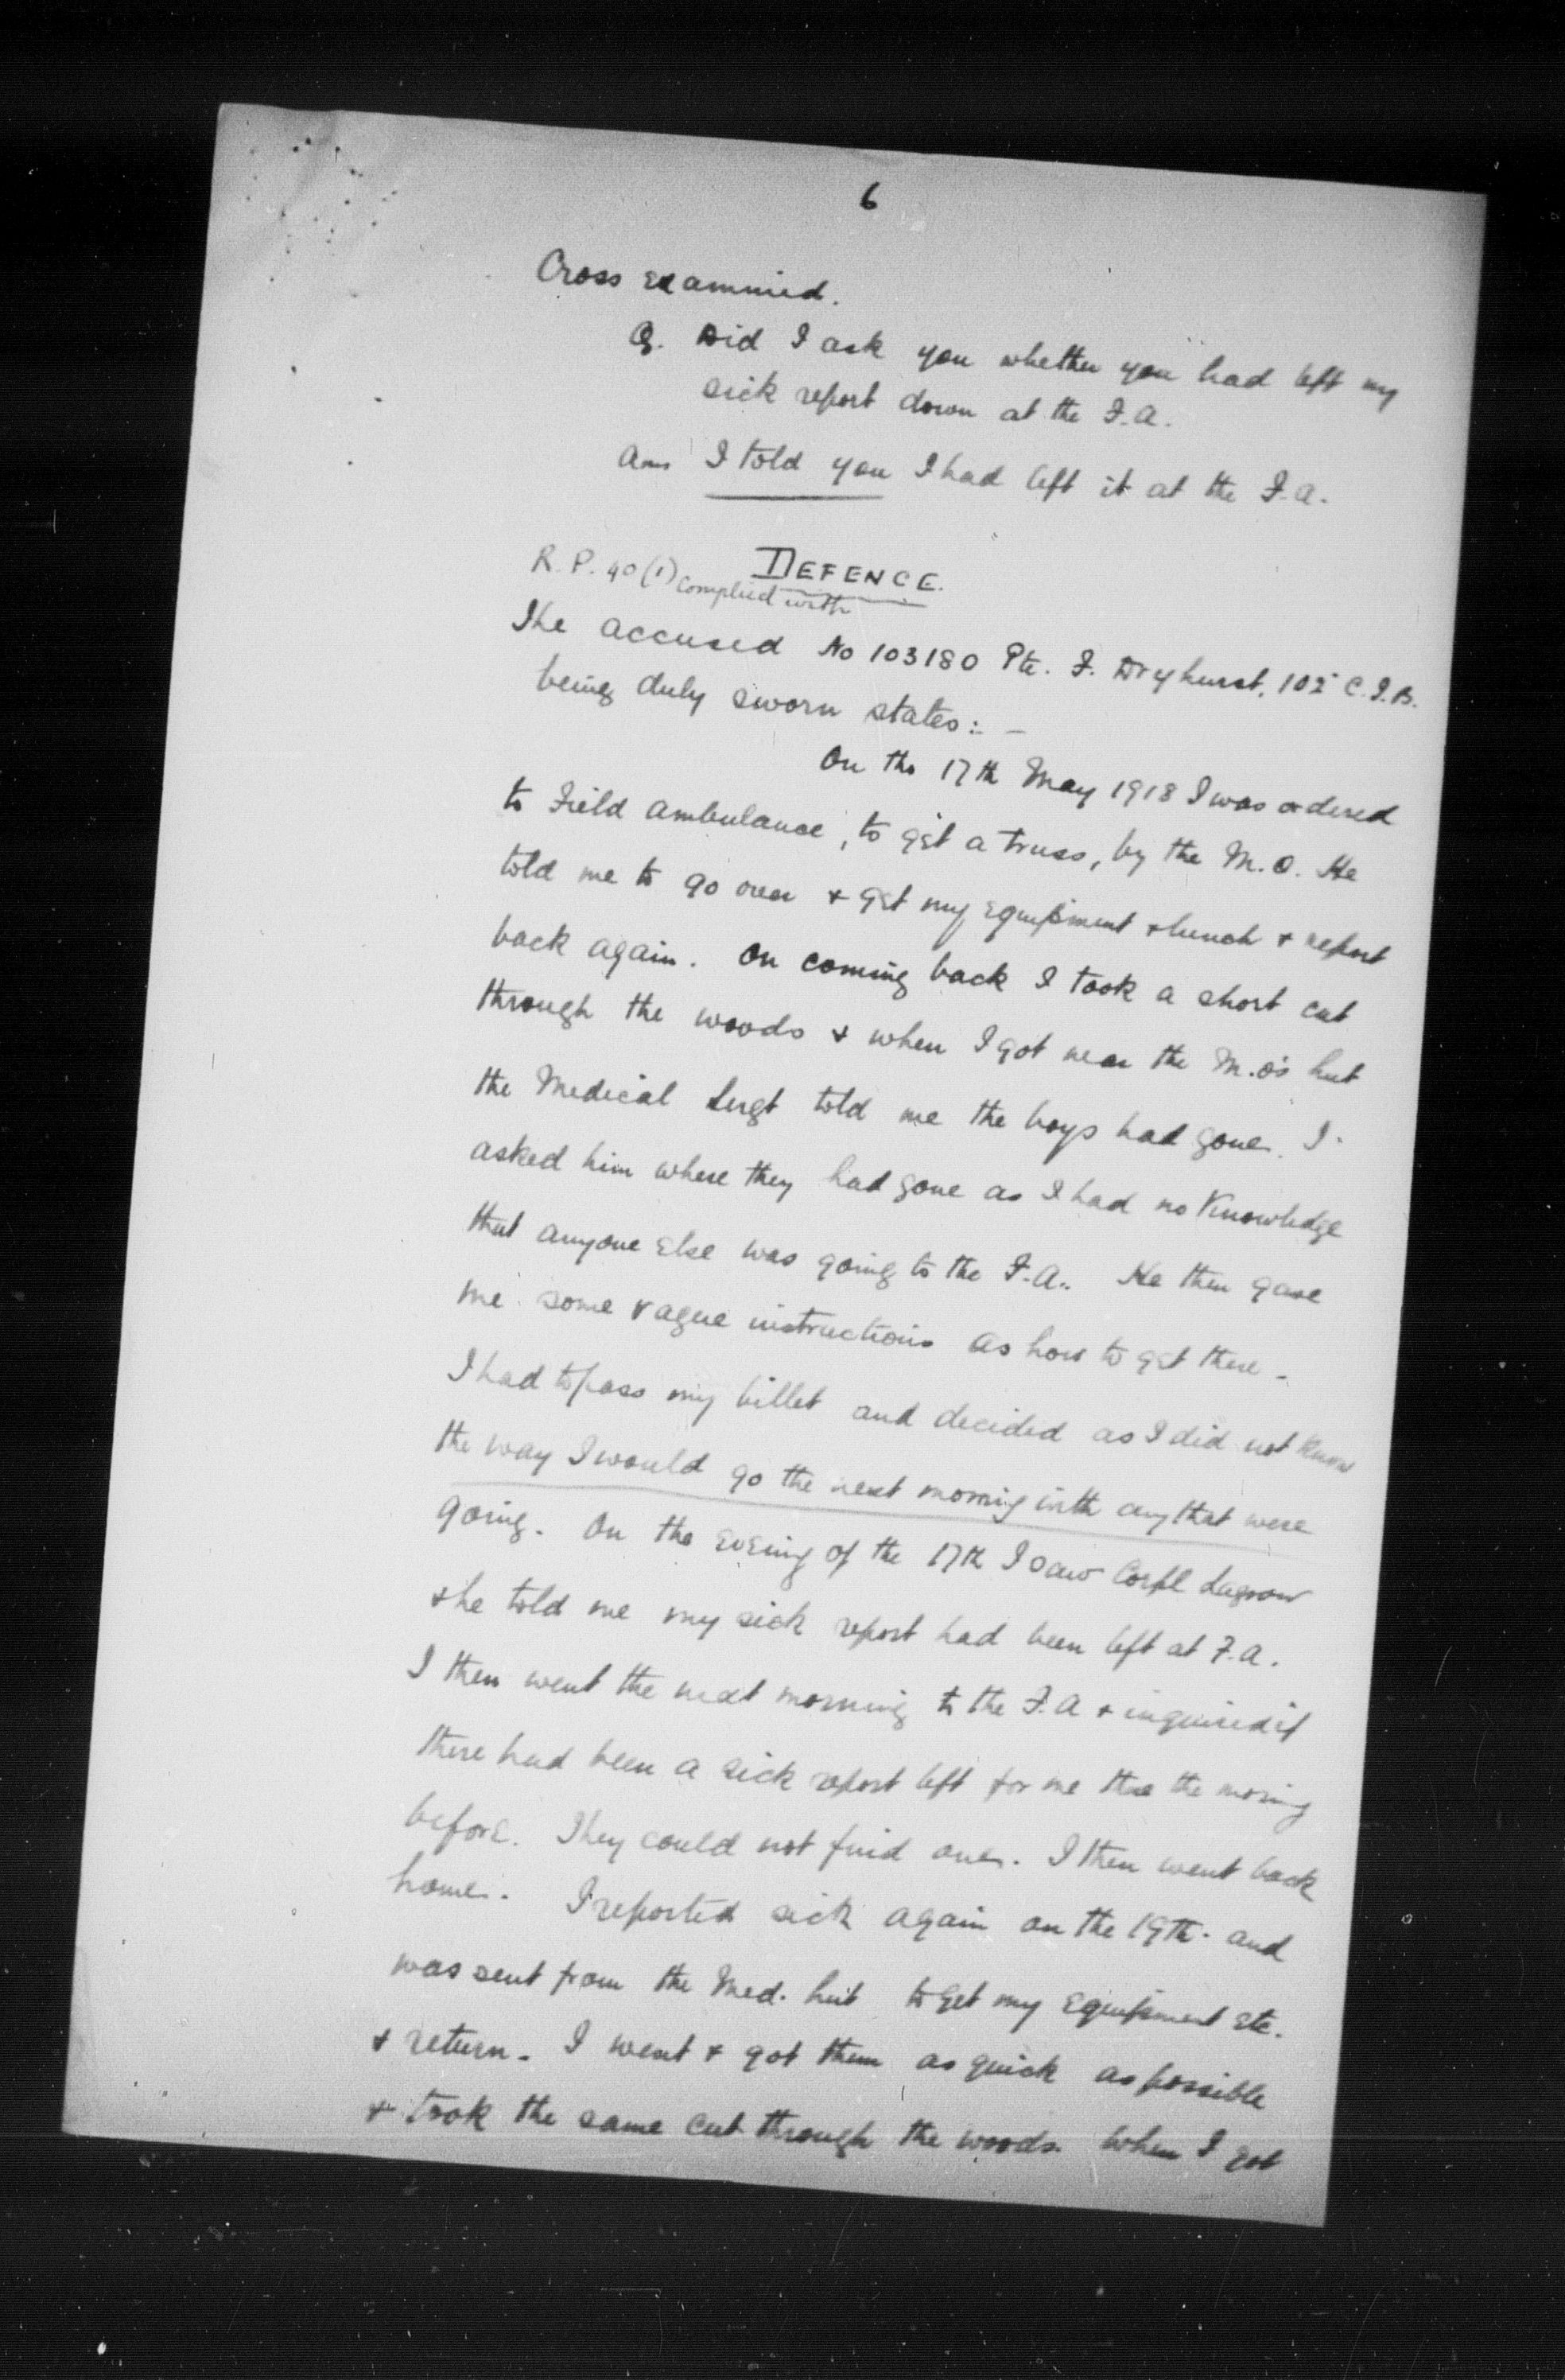 6
Cross examined.
Q. Did I ask you whether you had left my
sick report down at the F.A.
Ans I told you I had left it at the F.A.
DEFENCE.
R.P. 40 (1) complied with
The accused No 103180 Pte. F. Dryhurst, 102 C.I.B.
being duly sworn states: -
On the 17th May 1918 I was ordered
to Field ambulance, to get a truss, by the M.O. He
told me to go over + get my equipment + lunch + report
back again. On coming back I took a short cut
through the woods + when I got near the M.O's hut
the Medical Sergt told me the boys had gone. I
asked him where they had gone as I had no knowledge
that anyone else was going to the F.A.. He then gave
me some vague instructions as how to get there -
I had to pass my billet and decided as I did not know
the way I would go the next morning with any that were
going. On the evening of the 17th I saw Corpl
+ he told me my sick report had been left at F.A.
I then went the next morning to the F.A + inquired if
there had been a sick report left for me the morning
before. They could not find one. I then went back
home. I reported sick again on the 19th. and
was sent from the Med. hut to get my equipment etc.
+ return. I went + got them as quick as possible
+ took the same cut through the woods. When I got